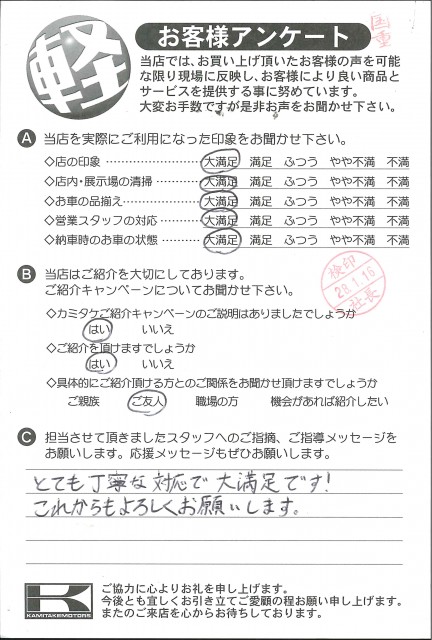 軽
お客様アンケート
国重
当店では、お買い上げ頂いたお客様の声を可能
な限り現場に反映し、お客様により良い商品と
サービスを提供する事に努めています。
大変お手数ですが是非お声をお聞かせ下さい。
A 当店を実際にご利用になった印象をお聞かせ下さい。
◇店の印象 ………………… 大満足 満足 ふつう やや不満 不満
◇店内・展示場の清掃………… 大満足 満足 ふつう やや不満 不満
◇お車の品揃え……………… 大満足 満足 ふつう やや不満 不満
◇営業スタッフの対応 ……… 大満足 満足 ふつう やや不満 不満
◇納車時のお車の状態 ……… 大満足 満足 ふつう やや不満 不満
B 当店はご紹介を大切にしております。
ご紹介キャンペーンについてお聞かせ下さい。
検印
29.1.16
社長
◇カミタケご紹介キャンペーンのご説明はありましたでしょうか
はい いいえ
◇ご紹介を頂けますでしょうか
はい いいえ
◇具体的にご紹介頂ける方とのご関係をお聞かせ頂けますでしょうか
ご親族 ご友人 職場の方 機会があれば紹介したい
C 担当させて頂きましたスタッフへのご指摘、ご指導メッセージを
お願いします。応援メッセージもぜひお願いします。
とても丁寧な対応で大満足です!
これからもよろしくお願いします。
K
KAMITAKEMOTORS
ご協力に心よりお礼を申し上げます。
今後とも宜しくお引き立てご愛顧の程お願い申し上げます。
またのご来店を心からお待ちしております。